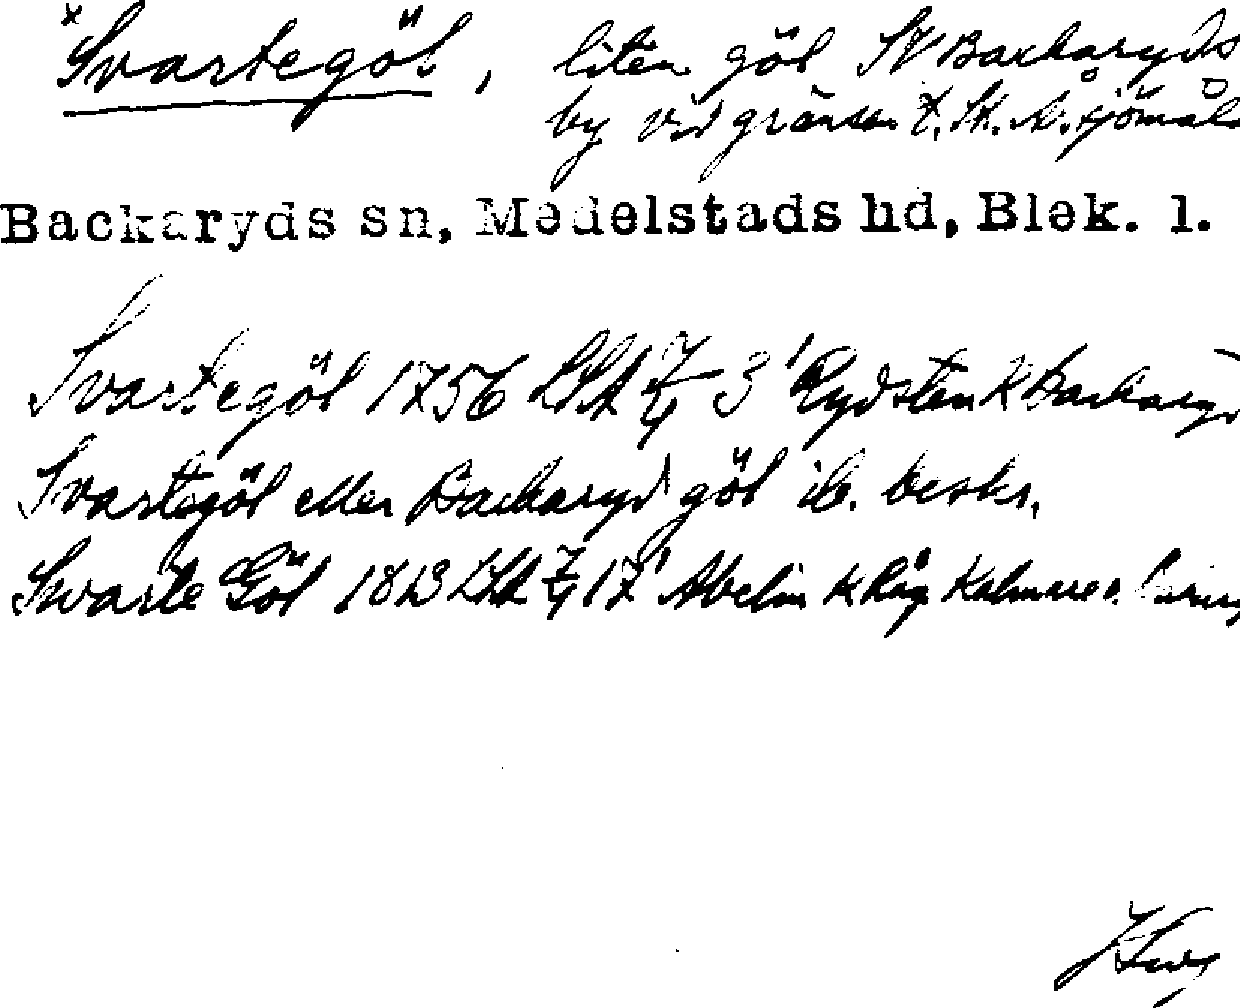 * Svartegöl, liten göl SV Backaryds
by vid gränsen t. St. Å. sjömåla
Backaryds sn, Medelstads hd, Blek. l.
Svartegöl 1756 LSA 7/4 3¹ Rydsten K Backaryd
Svartegöl eller Backaryd göl ib. beskr.
Swarte Göl 1813 LSA 7/4 17¹ Abelin K Råg